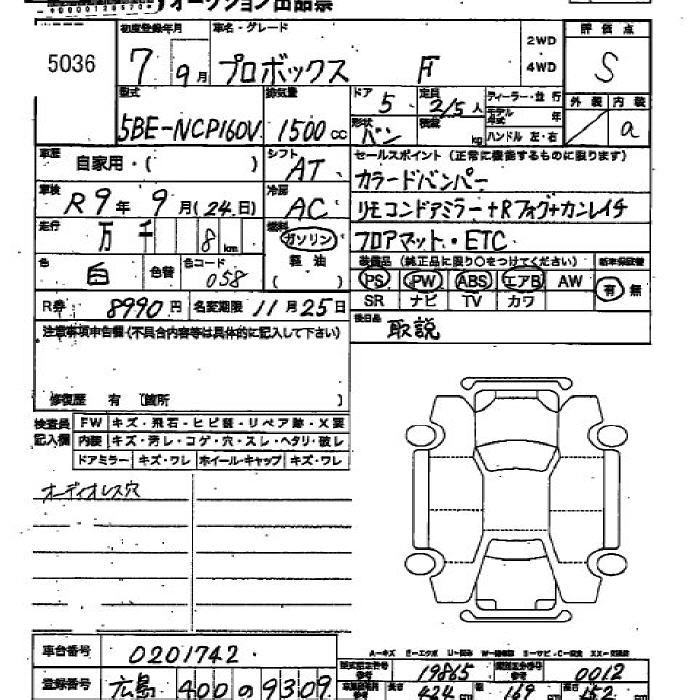 オークション出品票
5036
初度登録年月 車名・グレード 2WD 4WD 評価点
7 9月 プロボックス F S
型式 排気量 ドア 5 定員 2/5人 ディーラー・並行 外装 内装
5BE-NCP160V 1500cc 形状 バン 積載 kg モデル年式 年 ハンドル 左・右 a
車歴 自家用・( ) シフト AT セールスポイント(正常に機能するものに限ります)
カラードバンパー
車検 R9年9月(24日) 冷房 AC リモコンドアミラー+Rフォグ+カンレイチ
走行 万千 8km 燃料 ガソリン フロアマット・ETC
軽油 ( )
色 白 色替 色コード 058 装備品(純正品に限り○をつけてください) 新車保証書
PS PW ABS エアB AW 有 無
SR ナビ TV カワ
R券 8990円 名変期限 11月25日
後日品 取説
注意事項申告欄(不具合内容等は具体的に記入して下さい)
修復歴 有 〔箇所 〕
検査員記入欄 FW キズ・飛石・ヒビ割・リペア跡・X要
内装 キズ・汚レ・コゲ・穴・スレ・ヘタリ・破レ
ドアミラー キズ・ワレ ホイールキャップ キズ・ワレ
オーディオレス穴
A-キズ E-エクボ U-凹み W-補修跡 S-サビ・C-腐食 XX-交換済
車台番号 0201742
型式指定番号 19865 類別区分番号 0012
登録番号 広島 400 の 9309
長さ 424cm 幅 169cm 高さ 152cm